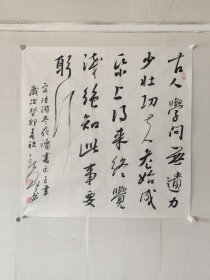 古人學問無遺力
少壯功夫老始成
紙上得來終覺
淺絕知此事要
躬行
宋陸游冬夜讀書示子聿
歲次癸卯春